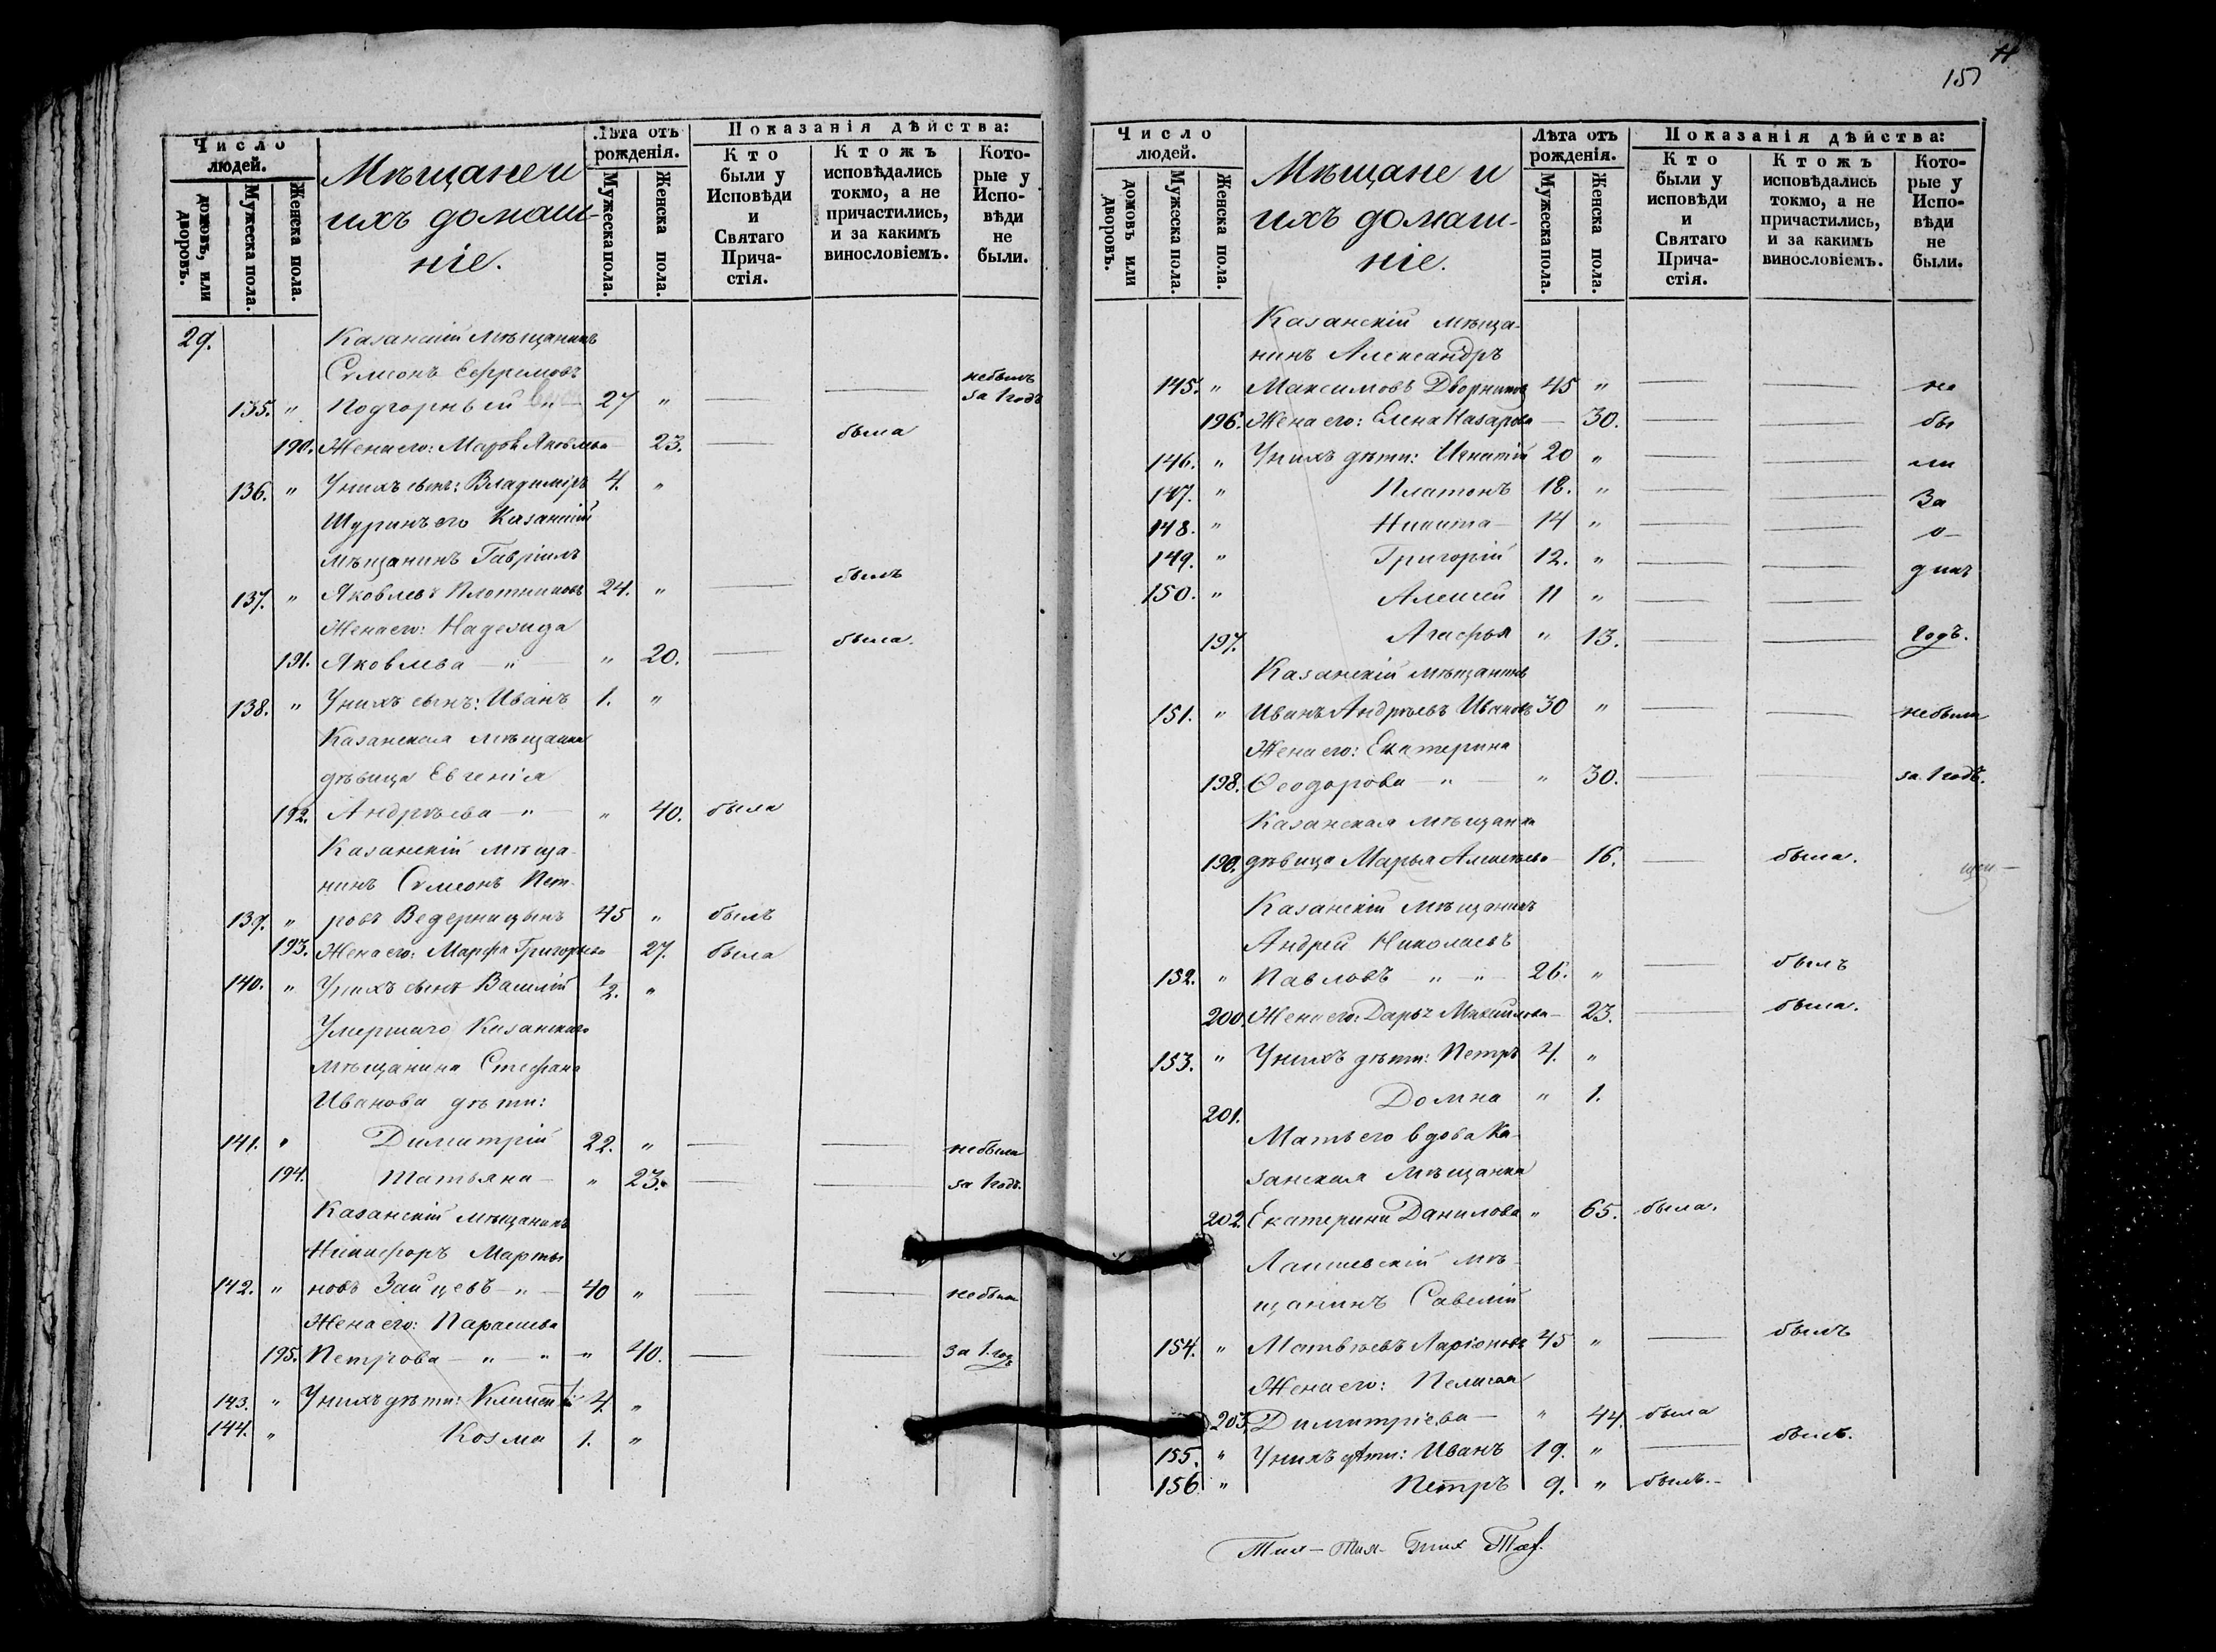 Число людей.
домовъ, или дворовъ.
Мужеска пола.
Женска пола.
Мѣщане и
ихъ домаш-
ніе.
Лѣта отъ рожденія.
Мужеска пола.
Женска пола.
Показанія дѣйства:
Кто были у Исповѣди и Святаго Прича- стія.
Ктожъ исповѣдались токмо, а не причастились, и за какимъ винословіемъ.
Кото- рые у Испо- вѣди не были.
29. Казанскій мѣщанинъ
Сѵмеонъ Ефремовъ небылъ
135. " Подгорный 27 " — — за 1 годъ
190. Жена его: Яковлева 23. — была
136. " У нихъ сынъ: Владиміръ 4. "
Шуринъ его Казанскій
мѣщанинъ Гавріилъ
137. " Яковлевъ Плотниковъ 24. " — былъ
Жена его: Надежда
191. Яковлева — " — " 20. — была.
138. " У нихъ сынъ: Иванъ 1. "
Казанская мѣщанка
дѣвица Евгенія
192. Андрѣева — " — " 40. была
Казанскій мѣща-
нинъ Сѵмеонъ Пет-
139. " ровъ Ведерницынъ 45 " былъ
193. Жена его: Марфа Григорьева 27. была
140. " У нихъ сынъ Василій 1/2. "
Умершаго Казанскаго
мѣщанина Стефана
Иванова дѣти:
141. " Димитрій 22. " — — небыли
194. Татьяна — " 23. — — за 1 годъ.
Казанскій мѣщанинъ
Никифоръ Марты
142. " новъ Зайцевъ — " — 40 " — — небыли
Жена его: Парасковья
195. Петрова — " — " " 40. — — за 1. годъ
143. " У нихъ дѣти: Климентъ 4. "
144. " Козма 1. "
151
Число людей.
домовъ или дворовъ.
Мужеска пола.
Женска пола.
Мѣщане и
ихъ домаш-
ніе.
Лѣта отъ рожденія.
Мужеска пола.
Женска пола.
Показанія дѣйства:
Кто были у исповѣди и Святаго Прича- стія.
Ктожъ исповѣдались токмо, а не причастились, и за какимъ винословіемъ.
Кото- рые у Испо- вѣди не были.
Казанскій мѣща-
нинъ Александръ
145. " Максимовъ Дворниковъ 45 " — — не
196. Жена его: Елена Назарова — 30. — — бы
146. " У нихъ дѣти: Игнатій 20 " — — ли
147. " Платонъ 18. " — — За
148. " Никита — 14 " — — о-
149. " Григорій 12. " — — динъ
150. " Алексей 11 " — —
197. Агафья " 13. — — годъ.
Казанскій мѣщанинъ
151. " Иванъ Андрѣевъ Ивановъ 30 " — — небыли
Жена его: Екатерина
198. Ѳеодорова — " — " 30. — — за 1 годъ.
Казанская мѣщанка
199. дѣвица Марья Алексѣева — 16. — была.
Казанскій мѣщанинъ
Андрей Николаевъ
152. " Павловъ " — " — 26. " — былъ
200. Жена его: Дарья Михайлова — 23. — была.
153. " У нихъ дѣти: Петръ 4. "
201. Домна " 1.
Мать его вдова Ка-
занская мѣщанка
202. Екатерина Данилова " 65. была.
Лаишевскій мѣ-
щанинъ Савелій
154. " Матвѣевъ Ларіоновъ 45 " — былъ
Жена его: Пелагея
203. Димитріева — " 44. была
155. " У нихъ дѣти: Иванъ 19. " — былъ.
156. " Петръ 9. " былъ. —